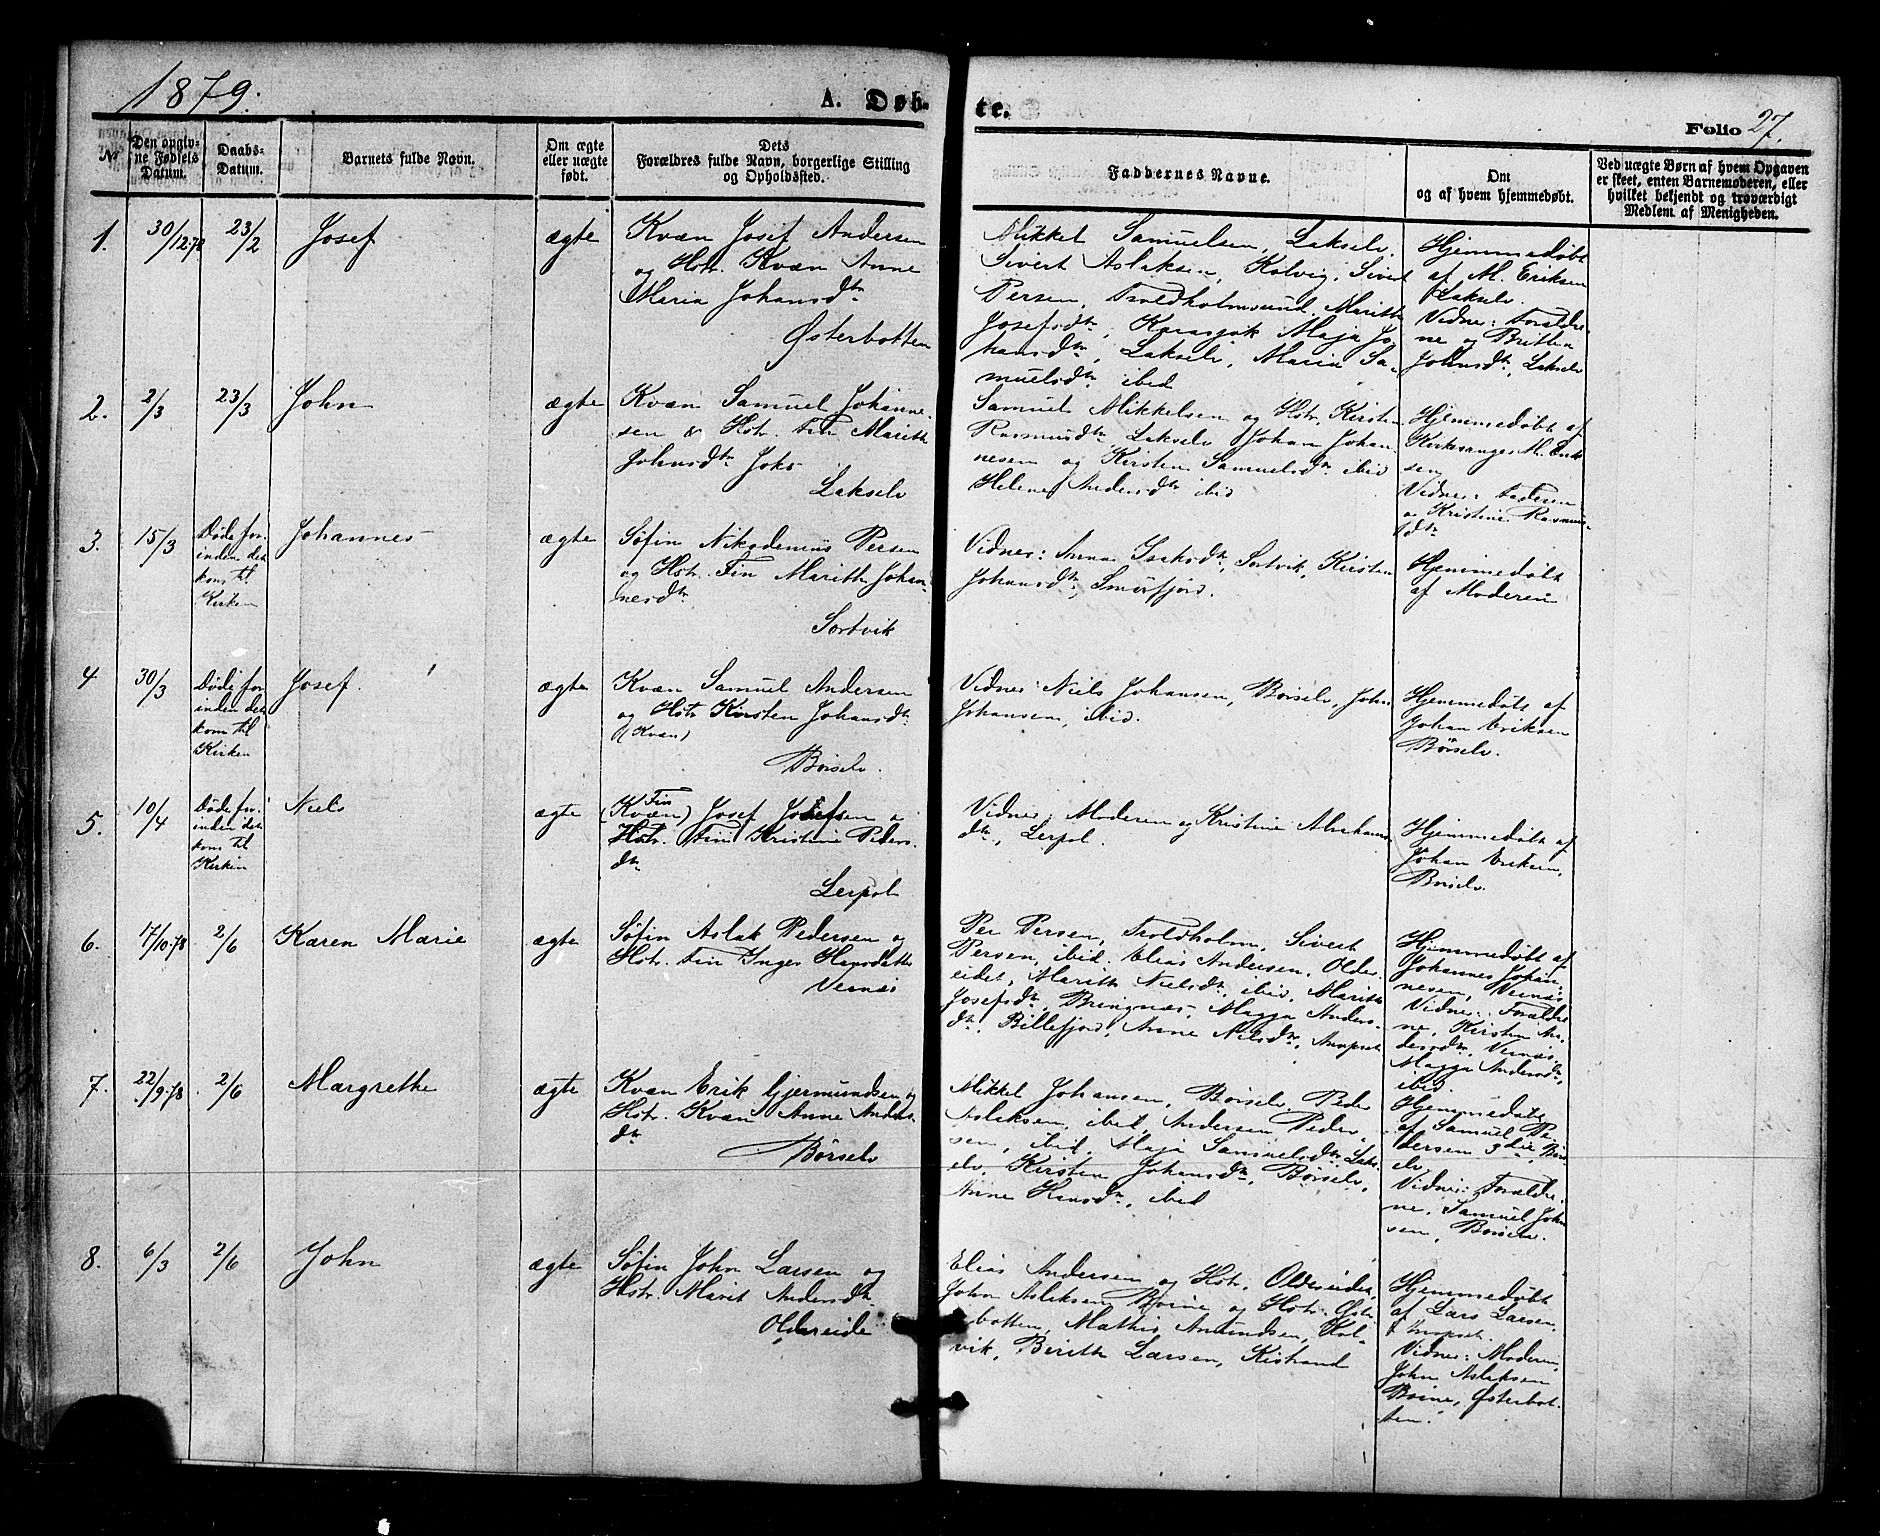 1879.
A. Døb-
te.
Folio 27.
No
Den opgiv-
ne Fødsels
Datum.
Daabs-
Datum.
Barnets fulde Navn.
Om ægte
eller uægte
født.
Dets
Forældres fulde Navn, borgerlige Stilling
og Opholdssted.
Faddernes Navne.
Om
og af hvem hjemmedøbt.
Ved uægte Børn af hvem Opgaven
er skeet, enten Barnemoderen, eller
hvilket bekjendt og troværdigt
Medlem af Menigheden.
1.
30/12.78
23/2
Josef
ægte
Kvæn Josef Andersen
og Hstr. Kvæn Anne
Maria Johansdtr
Østerbotten
Mikkel Samuelsen, Lakselv
Sivert Aslaksen, Kolvig, Sivert
Persen, Troldholmsund, Marith
Josefsdtr, Karasjok Maja Jo-
hansdtr, Lakselv, Maria Sa-
muelsdtr ibid
Hjemmedøbt
af M. Eriksen
Lakselv.
Vidner: Forældre
ne og Britha
Johnsdtr, Lakselv
2.
2/3
23/3
John
ægte
Kvæn Samuel Johanne-
sen & Hstr. Fin Marith
Johnsdtr Joks
Lakselv
Samuel Mikkelsen og Hstr. Kirsten
Rasmusdtr, Lakselv Johan Johan-
nesen og Kirsten Samuelsdtr ibid
Helene Andersdtr ibid
Hjemmedøbt af
Kirkesanger M. Erik
sen
Vidner: Faderen
o Kristine Rasmus-
dtr
3.
15/3
Døde for-
inden det
kom til
Kirken
Johannes
ægte
Søfin Nikodemus Persen
og Hstr. Fin Marith Johan-
nesdtr
Sortvik
Vidner: Anna Isaksdtr, Sortvik, Kirsten
Johansdtr, Smørfjord.
Hjemmedøbt
af Moderen
4
30/3
Døde for
inden det
kom til
Kirken
Josef.
ægte
Kvæn Samuel Andersen
og Hstr Kirsten Johansdtr
(Kvæn)
Børselv.
Vidner Niels Johansen, Børselv, John
Johansen, ibid.
Hjemmedøbt af
Johan Eriksen
Børselv.
5.
10/4
Døde for-
inden det
kom til
Kirken
Niels
ægte
Fin
(Kvæn) Josef Josefsen o
Hstr. Fin Kristine Peders-
dtr
Lerpol
Vidner: Moderen og Kristine Abrahams
dtr, Lerpol.
Hjemmedøbt af
Johan Eriksen,
Børselv.
6.
17/10.78
2/6
Karen Marie
ægte
Søfin Aslak Pedersen og
Hstr. Fin Inger Hansdatter
Veines
Per Persen, Troldholm, Sivert
Persen, ibid. Elias Andersen, Older-
eidet, Marith Nielsdtr, ibid, Marith
Josefsdtr, Bringnæs, Magga Anders-
dtr, Billefjord, Anne Nilsdtr,
Hjemmedøbt af
Johannes Johan-
nesen, Veines.
Vidner: Forældre
ne, Kirsten An-
dersdtr, Veines,
Magga Andersdtr,
ibid.
7.
22/9.78
2/6
Margrethe
ægte
Kvæn Erik Gjermundsen og
Hstr. Kvæn Anne Anders-
dtr
Børselv
Mikkel Johansen, Børselv, Peder
Aslaksen, ibid, Andersen Peder-
sen, ibid. Maja Samuelsdtr Laks-
elv, Kirsten Johansdtr, Børselv,
Anne Hansdtr, ibid
Hjemmedøbt
af Samuel Pe-
dersen 3die, Børs
elv
Vidner: Forældre-
ne, Samuel John
sen, Børselv.
8.
6/3
2/6
John
ægte
Søfin John Larsen og
Hstr. Marit Andersdtr
Oldereide
Elias Andersen og Hstr. Oldereidet,
John Aslaksen Boine og Hstr. Øst-
erbotten, Mathis Amundsen, Kol-
vik, Berith Larsen, Kistrand
Hjemmedøbt
af Lars Larsen,
Vidner: Moderen,
John Aslaksen
Boine, Østerbot-
ten.